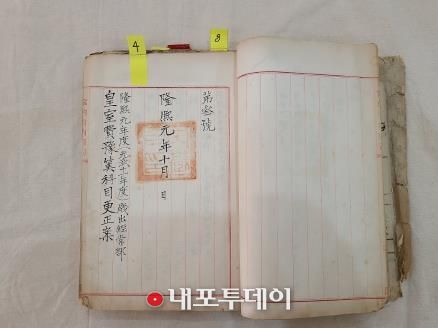 4
8
第參號
隆熙元年十月 日
隆熙元年度(光武十一年度)歲出經常部
皇室費豫算科目更正案
내포투데이